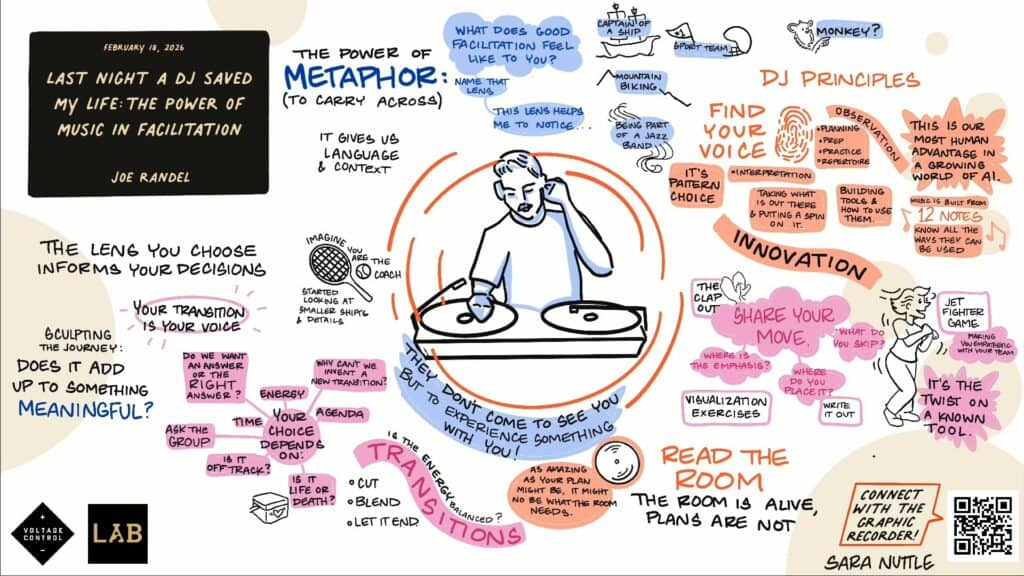 FEBRUARY 18, 2026
LAST NIGHT A DJ SAVED
MY LIFE: THE POWER OF
MUSIC IN FACILITATION
JOE RANDEL
THE POWER OF
METAPHOR:
(TO CARRY ACROSS)
IT GIVES US
LANGUAGE
& CONTEXT
WHAT DOES GOOD
FACILITATION FEEL
LIKE TO YOU?
NAME THAT
LENS
THIS LENS HELPS
ME TO NOTICE...
CAPTAIN OF
A SHIP
SPORT TEAM
MOUNTAIN
BIKING
BEING PART
OF A JAZZ
BAND
MONKEY?
DJ PRINCIPLES
FIND
YOUR
VOICE
OBSERVATION
•PLANNING
•PREP
•PRACTICE
•REPERTOIRE
THIS IS OUR
MOST HUMAN
ADVANTAGE IN
A GROWING
WORLD OF AI.
IT'S
PATTERN
CHOICE
•INTERPRETATION
TAKING WHAT
IS OUT THERE
& PUTTING A SPIN
ON IT.
BUILDING
TOOLS &
HOW TO USE
THEM.
MUSIC IS BUILT FROM
12 NOTES
KNOW ALL THE
WAYS THEY CAN
BE USED
INNOVATION
THE LENS YOU CHOOSE
INFORMS YOUR DECISIONS
IMAGINE YOU
ARE THE
COACH
STARTED
LOOKING AT
SMALLER SHIFTS
& DETAILS
YOUR TRANSITION
IS YOUR VOICE
SCULPTING
THE JOURNEY:
DOES IT ADD
UP TO SOMETHING
MEANINGFUL?
DO WE WANT
AN ANSWER
OR THE
RIGHT
ANSWER?
WHY CAN'T WE
INVENT A
NEW TRANSITION?
ENERGY
TIME
AGENDA
YOUR
CHOICE
DEPENDS
ON:
ASK THE
GROUP
IS IT
OFF TRACK?
IS IT
LIFE OR
DEATH?
THEY DON'T COME TO SEE YOU
BUT TO EXPERIENCE SOMETHING
WITH YOU!
IS THE ENERGY BALANCED?
TRANSITIONS
•CUT
•BLEND
•LET IT END.
THE
CLAP
OUT
SHARE YOUR
MOVE.
WHAT DO
YOU SKIP?
WHERE IS
THE EMPHASIS?
WHERE
DO YOU
PLACE IT?
VISUALIZATION
EXERCISES
WRITE
IT OUT
JET
FIGHTER
GAME
MAKING
YOU EMPATHETIC
WITH YOUR TEAM
IT'S THE
TWIST ON
A KNOWN
TOOL.
AS AMAZING
AS YOUR PLAN
MIGHT BE, IT MIGHT
NO BE WHAT THE ROOM
NEEDS.
READ THE
ROOM
THE ROOM IS ALIVE,
PLANS ARE NOT
VOLTAGE
CONTROL
LAB
CONNECT
WITH THE
GRAPHIC
RECORDER!
SARA NUTTLE